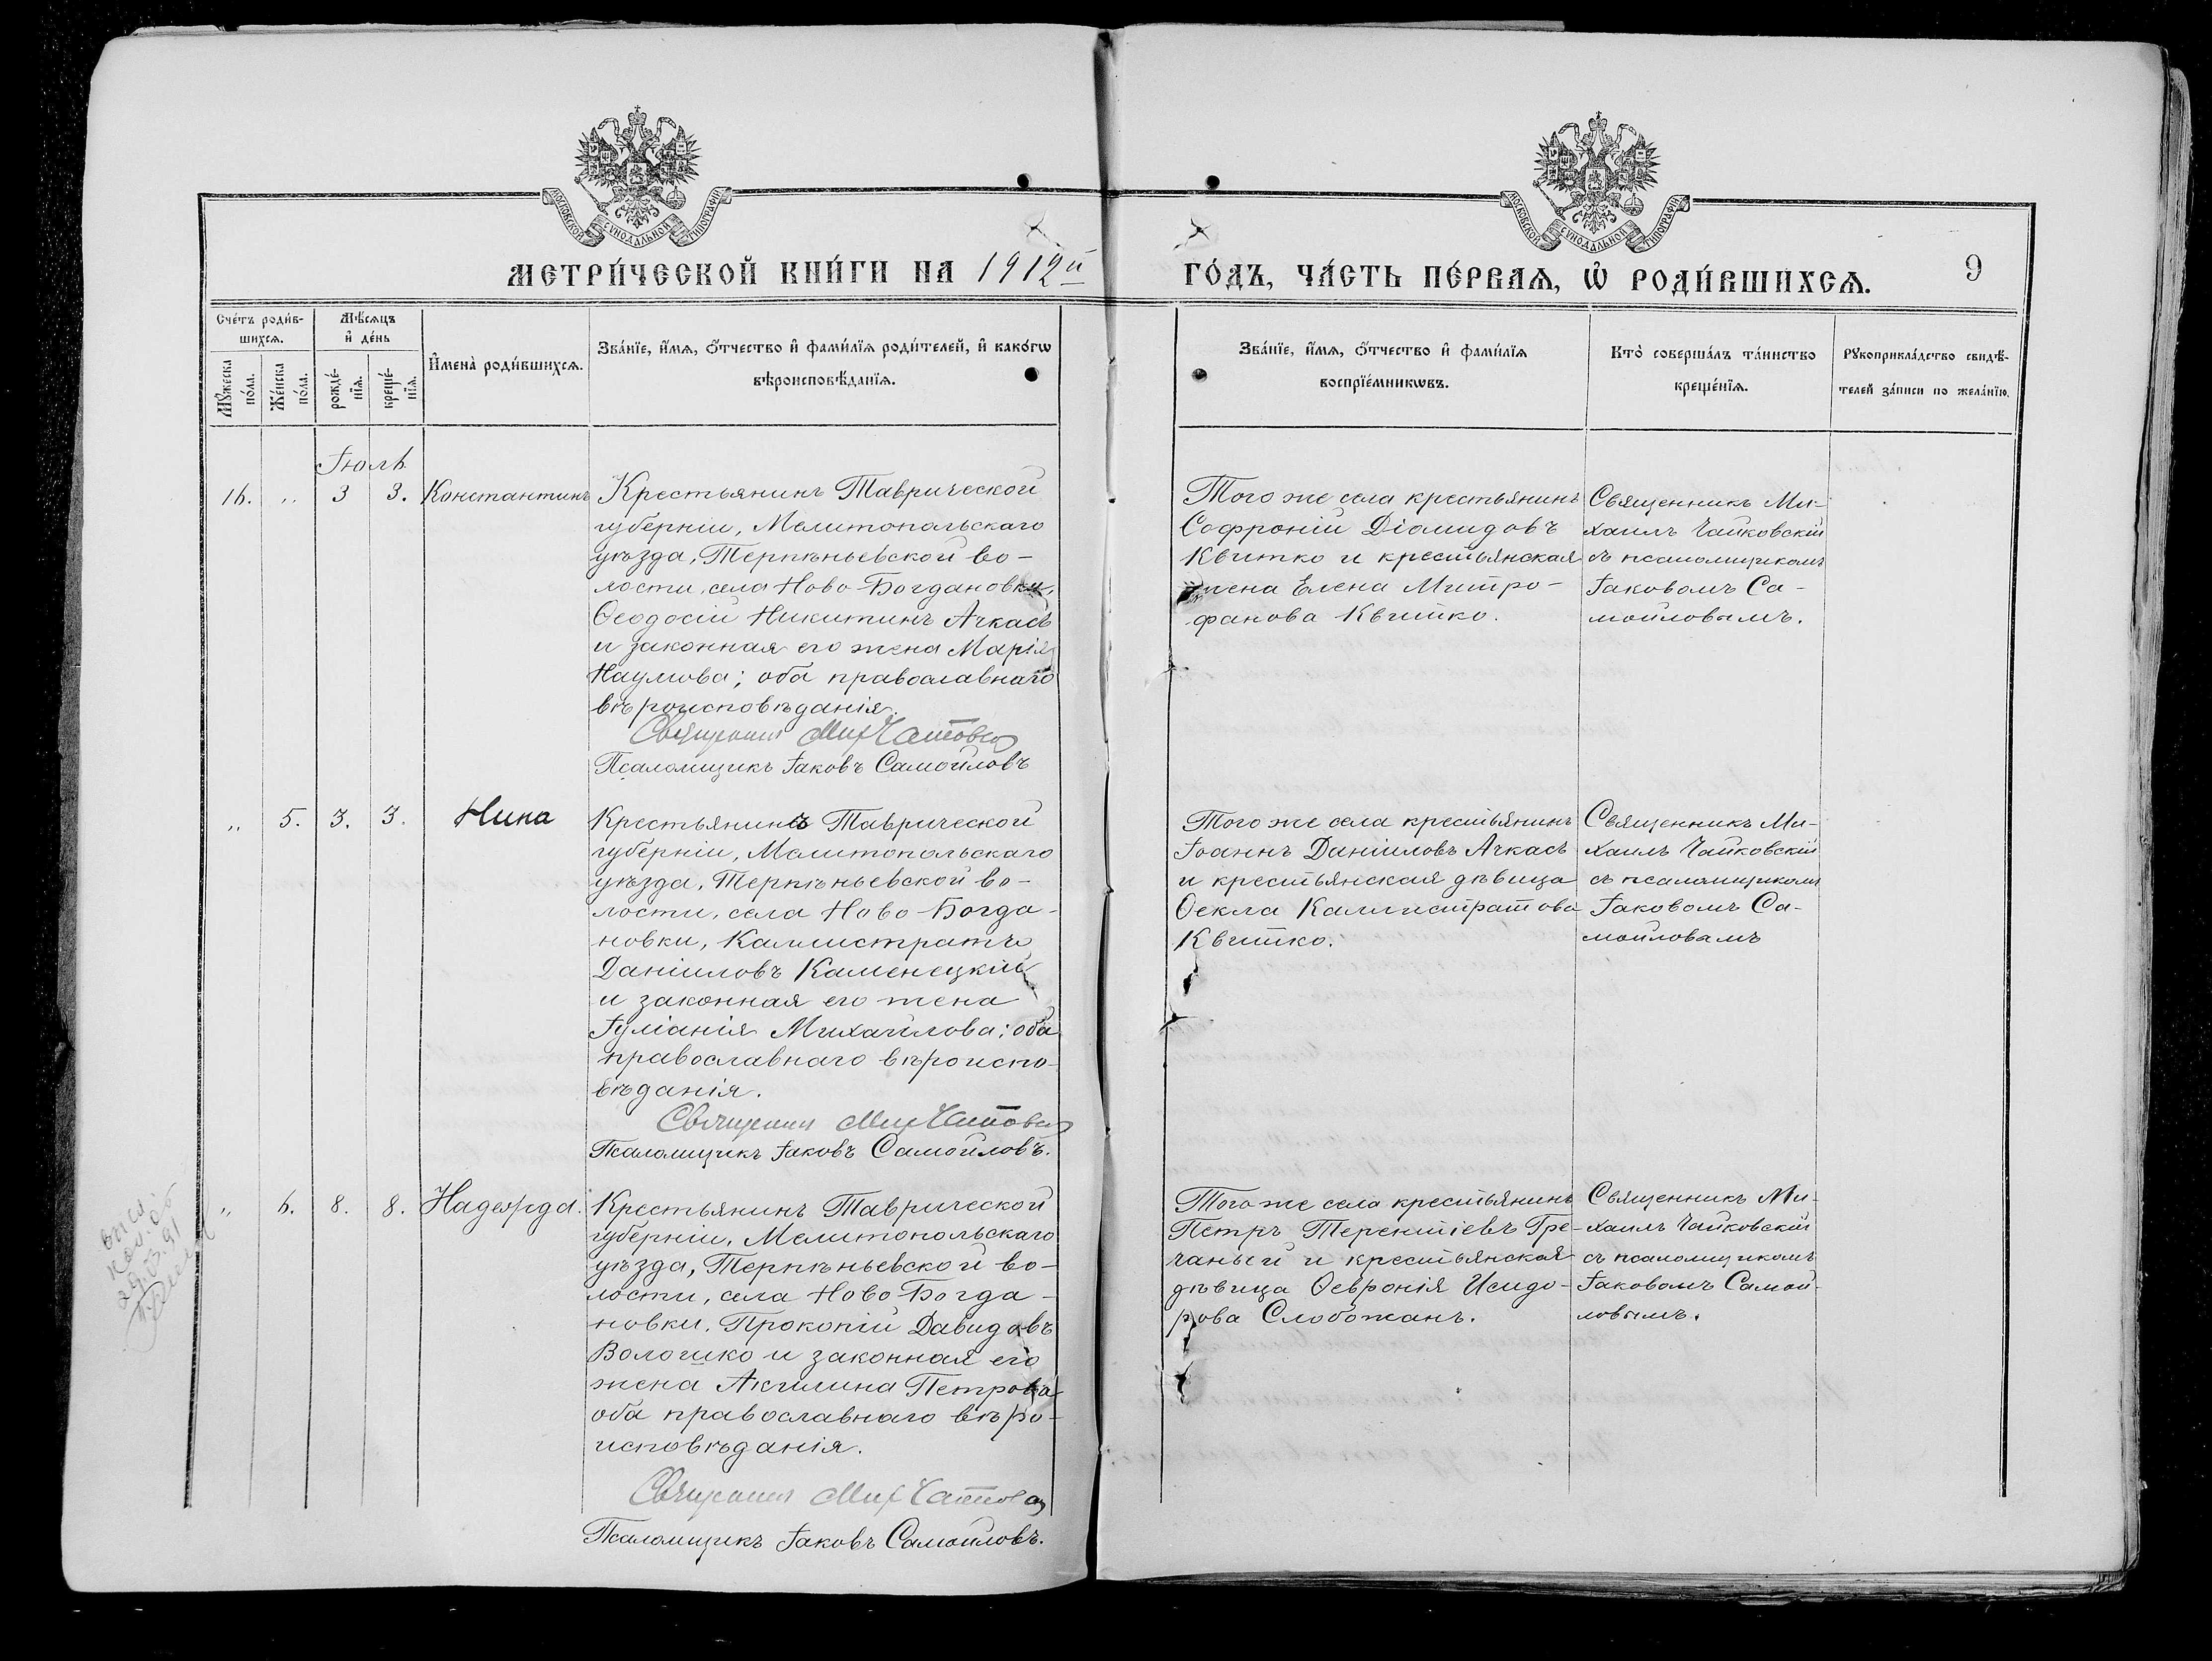 МОСКОВСКОЙ СУНОДАЛЬНОЙ ТИПОГРАФІИ
МОСКОВСКОЙ СУНОДАЛЬНОЙ ТИПОГРАФІИ
МЕТРИ́ЧЕСКОЙ КНИ́ГИ НА 1912й ГО́ДЪ, ЧА́СТЬ ПЕ́РВАѦ, Ѡ҆ РОДИ́ВШИХСѦ. 9
Сче́тъ роди́в-
шихсѧ.
Мꙋ́жеска
по́ла.
Же́нска
по́ла.
Мѣ́сѧцъ
и҆ де́нь
рожде́-
нїѧ.
креще́-
нїѧ.
И҆мена̀ роди́вшихсѧ.
Зва́нїе, и҆́мѧ, ѻ҆́тчество и҆ фами́лїѧ роди́телей, и҆ како́гѡ
вѣроисповѣ́данїѧ.
Зва́нїе, и҆́мѧ, ѻ҆́тчество и҆ фами́лїѧ
воспрїе́мникѡвъ.
Кто̀ соверша́лъ та́инство
креще́нїѧ.
Рꙋкоприкла́дство свидѣ́-
телей за́писи по жела́нїю.
Іюль
16. „ 3 3. Константинъ
Крестьянинъ Таврической
губерніи, Мелитопольскаго
уѣзда, Терпѣньевской во-
лости, села Ново-Богдановки,
Ѳеодосій Никитинъ Ачкасъ
и законная его жена Марія
Наумова; оба православнаго
вѣроисповѣданія.
Псаломщикъ Іаковъ Самойловъ
Того же села крестьянинъ
Софроній Діомидовъ
Квитко и крестьянская
жена Елена Митро-
фанова Квитко.
Священникъ Ми-
хаилъ Чайковскій
съ псаломщикомъ
Іаковомъ Са-
мойловымъ.
„ 5. 3. 3. Нина
Крестьянинъ Таврической
губерніи, Мелитопольскаго
уѣзда, Терпѣньевской во-
лости, села Ново-Богда-
новки, Каллистратъ
Даніиловъ Каменецкій
и законная его жена
Іуліанія Михайлова; оба
православнаго вѣроиспо-
вѣданія.
Псаломщикъ Іаковъ Самойловъ.
Того же села крестьянинъ
Іоаннъ Даніиловъ Ачкасъ
и крестьянская дѣвица
Ѳекла Каллистратова
Квитко.
Священникъ Ми-
хаилъ Чайковскій
съ псаломщикомъ
Іаковомъ Са-
мойловамъ
„ 6. 8. 8. Надежда.
Крестьянинъ Таврической
губерніи, Мелитопольскаго
уѣзда, Терпѣньевской во-
лости, села Ново-Богда-
новки, Прокопій Давидовъ
Волошко и законная его
жена Акилина Петрова
оба православнаго вѣро-
исповѣданія.
Псаломщикъ Іаковъ Самойловъ.
Того же села крестьянинъ
Петръ Терентіевъ Гре-
чаный и крестьянская
дѣвица Ѳевронія Исидо-
рова Слобожанъ.
Священникъ Ми-
хаилъ Чайковскій
съ псаломщикомъ
Іаковомъ Самой-
ловымъ.